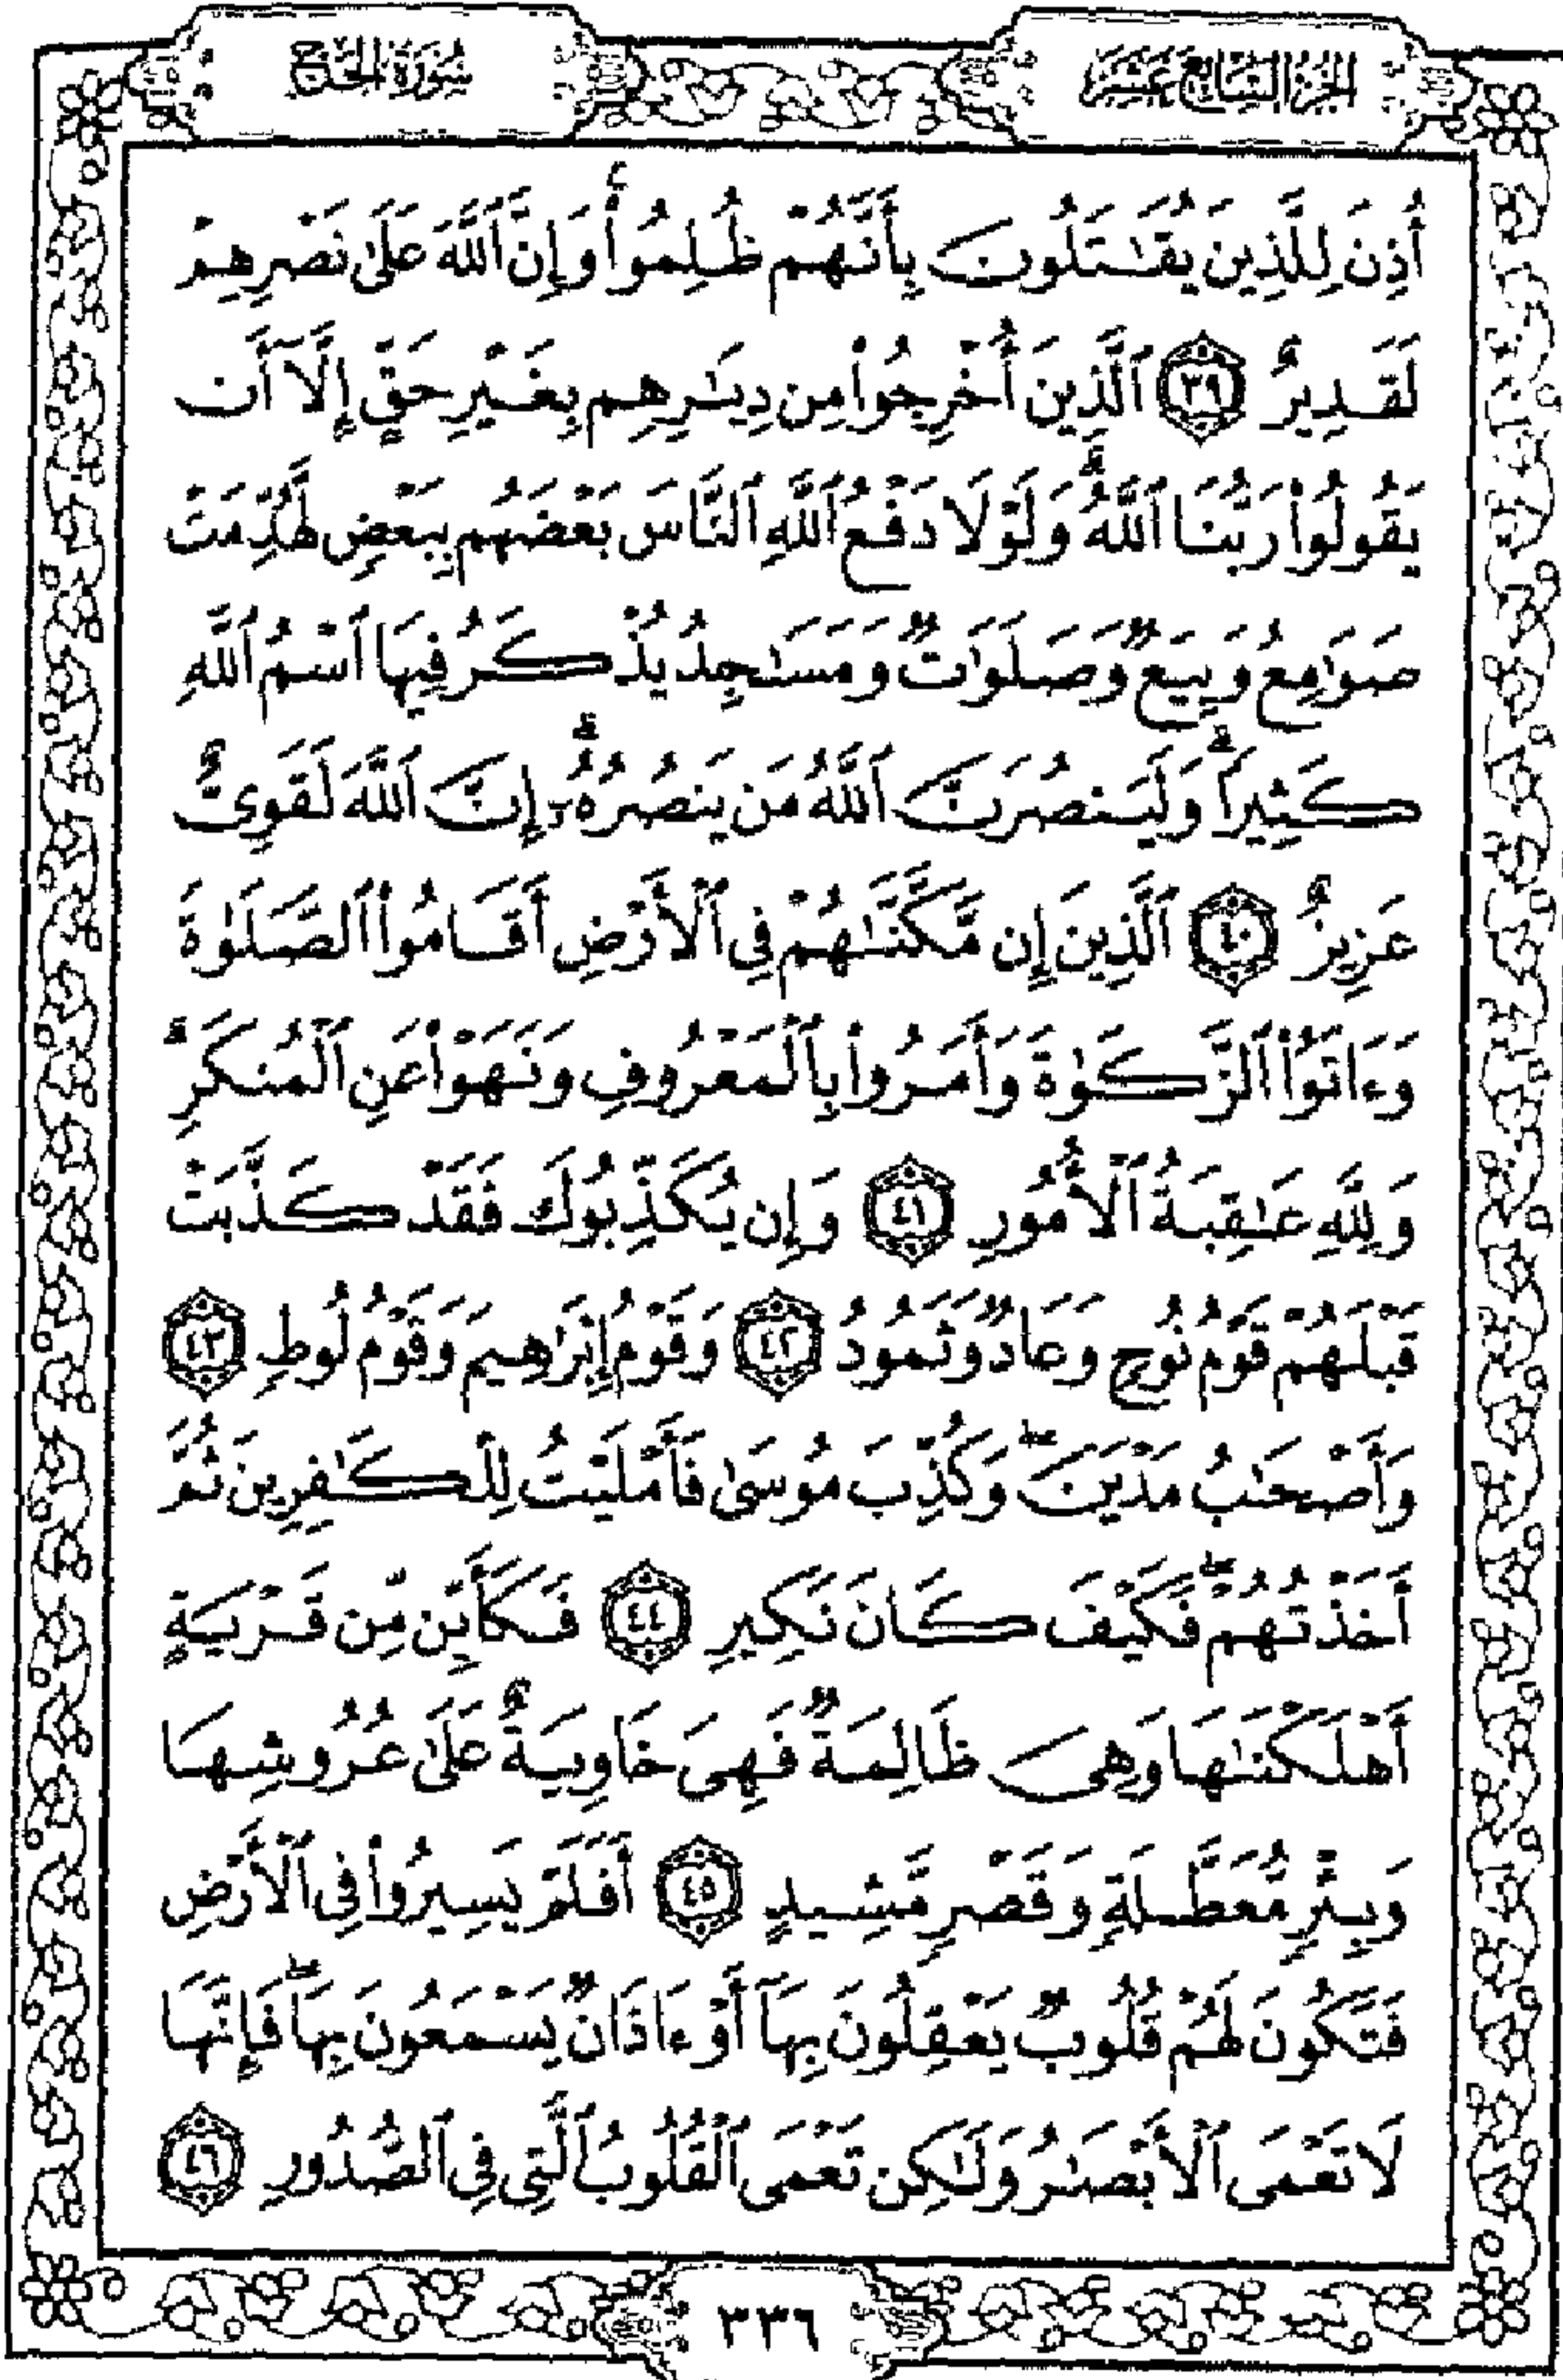 الجزء السابع عشر
سورة الحج
أُذِنَ لِلَّذِينَ يُقَٰتَلُونَ بِأَنَّهُمْ ظُلِمُوا۟ ۚ وَإِنَّ ٱللَّهَ عَلَىٰ نَصْرِهِمْ
لَقَدِيرٌ ﴿٣٩﴾ ٱلَّذِينَ أُخْرِجُوا۟ مِن دِيَٰرِهِم بِغَيْرِ حَقٍّ إِلَّآ أَن
يَقُولُوا۟ رَبُّنَا ٱللَّهُ ۗ وَلَوْلَا دَفْعُ ٱللَّهِ ٱلنَّاسَ بَعْضَهُم بِبَعْضٍ لَّهُدِّمَتْ
صَوَٰمِعُ وَبِيَعٌ وَصَلَوَٰتٌ وَمَسَٰجِدُ يُذْكَرُ فِيهَا ٱسْمُ ٱللَّهِ
كَثِيرًا ۗ وَلَيَنصُرَنَّ ٱللَّهُ مَن يَنصُرُهُۥٓ ۗ إِنَّ ٱللَّهَ لَقَوِىٌّ
عَزِيزٌ ﴿٤٠﴾ ٱلَّذِينَ إِن مَّكَّنَّٰهُمْ فِى ٱلْأَرْضِ أَقَامُوا۟ ٱلصَّلَوٰةَ
وَءَاتَوُا۟ ٱلزَّكَوٰةَ وَأَمَرُوا۟ بِٱلْمَعْرُوفِ وَنَهَوْا۟ عَنِ ٱلْمُنكَرِ ۗ
وَلِلَّهِ عَٰقِبَةُ ٱلْأُمُورِ ﴿٤١﴾ وَإِن يُكَذِّبُوكَ فَقَدْ كَذَّبَتْ
قَبْلَهُمْ قَوْمُ نُوحٍ وَعَادٌ وَثَمُودُ ﴿٤٢﴾ وَقَوْمُ إِبْرَٰهِيمَ وَقَوْمُ لُوطٍ ﴿٤٣﴾
وَأَصْحَٰبُ مَدْيَنَ ۖ وَكُذِّبَ مُوسَىٰ فَأَمْلَيْتُ لِلْكَٰفِرِينَ ثُمَّ
أَخَذْتُهُمْ ۖ فَكَيْفَ كَانَ نَكِيرِ ﴿٤٤﴾ فَكَأَيِّن مِّن قَرْيَةٍ
أَهْلَكْنَٰهَا وَهِىَ ظَالِمَةٌ فَهِىَ خَاوِيَةٌ عَلَىٰ عُرُوشِهَا
وَبِئْرٍ مُّعَطَّلَةٍ وَقَصْرٍ مَّشِيدٍ ﴿٤٥﴾ أَفَلَمْ يَسِيرُوا۟ فِى ٱلْأَرْضِ
فَتَكُونَ لَهُمْ قُلُوبٌ يَعْقِلُونَ بِهَآ أَوْ ءَاذَانٌ يَسْمَعُونَ بِهَا ۖ فَإِنَّهَا
لَا تَعْمَى ٱلْأَبْصَٰرُ وَلَٰكِن تَعْمَى ٱلْقُلُوبُ ٱلَّتِى فِى ٱلصُّدُورِ ﴿٤٦﴾
٣٣٦